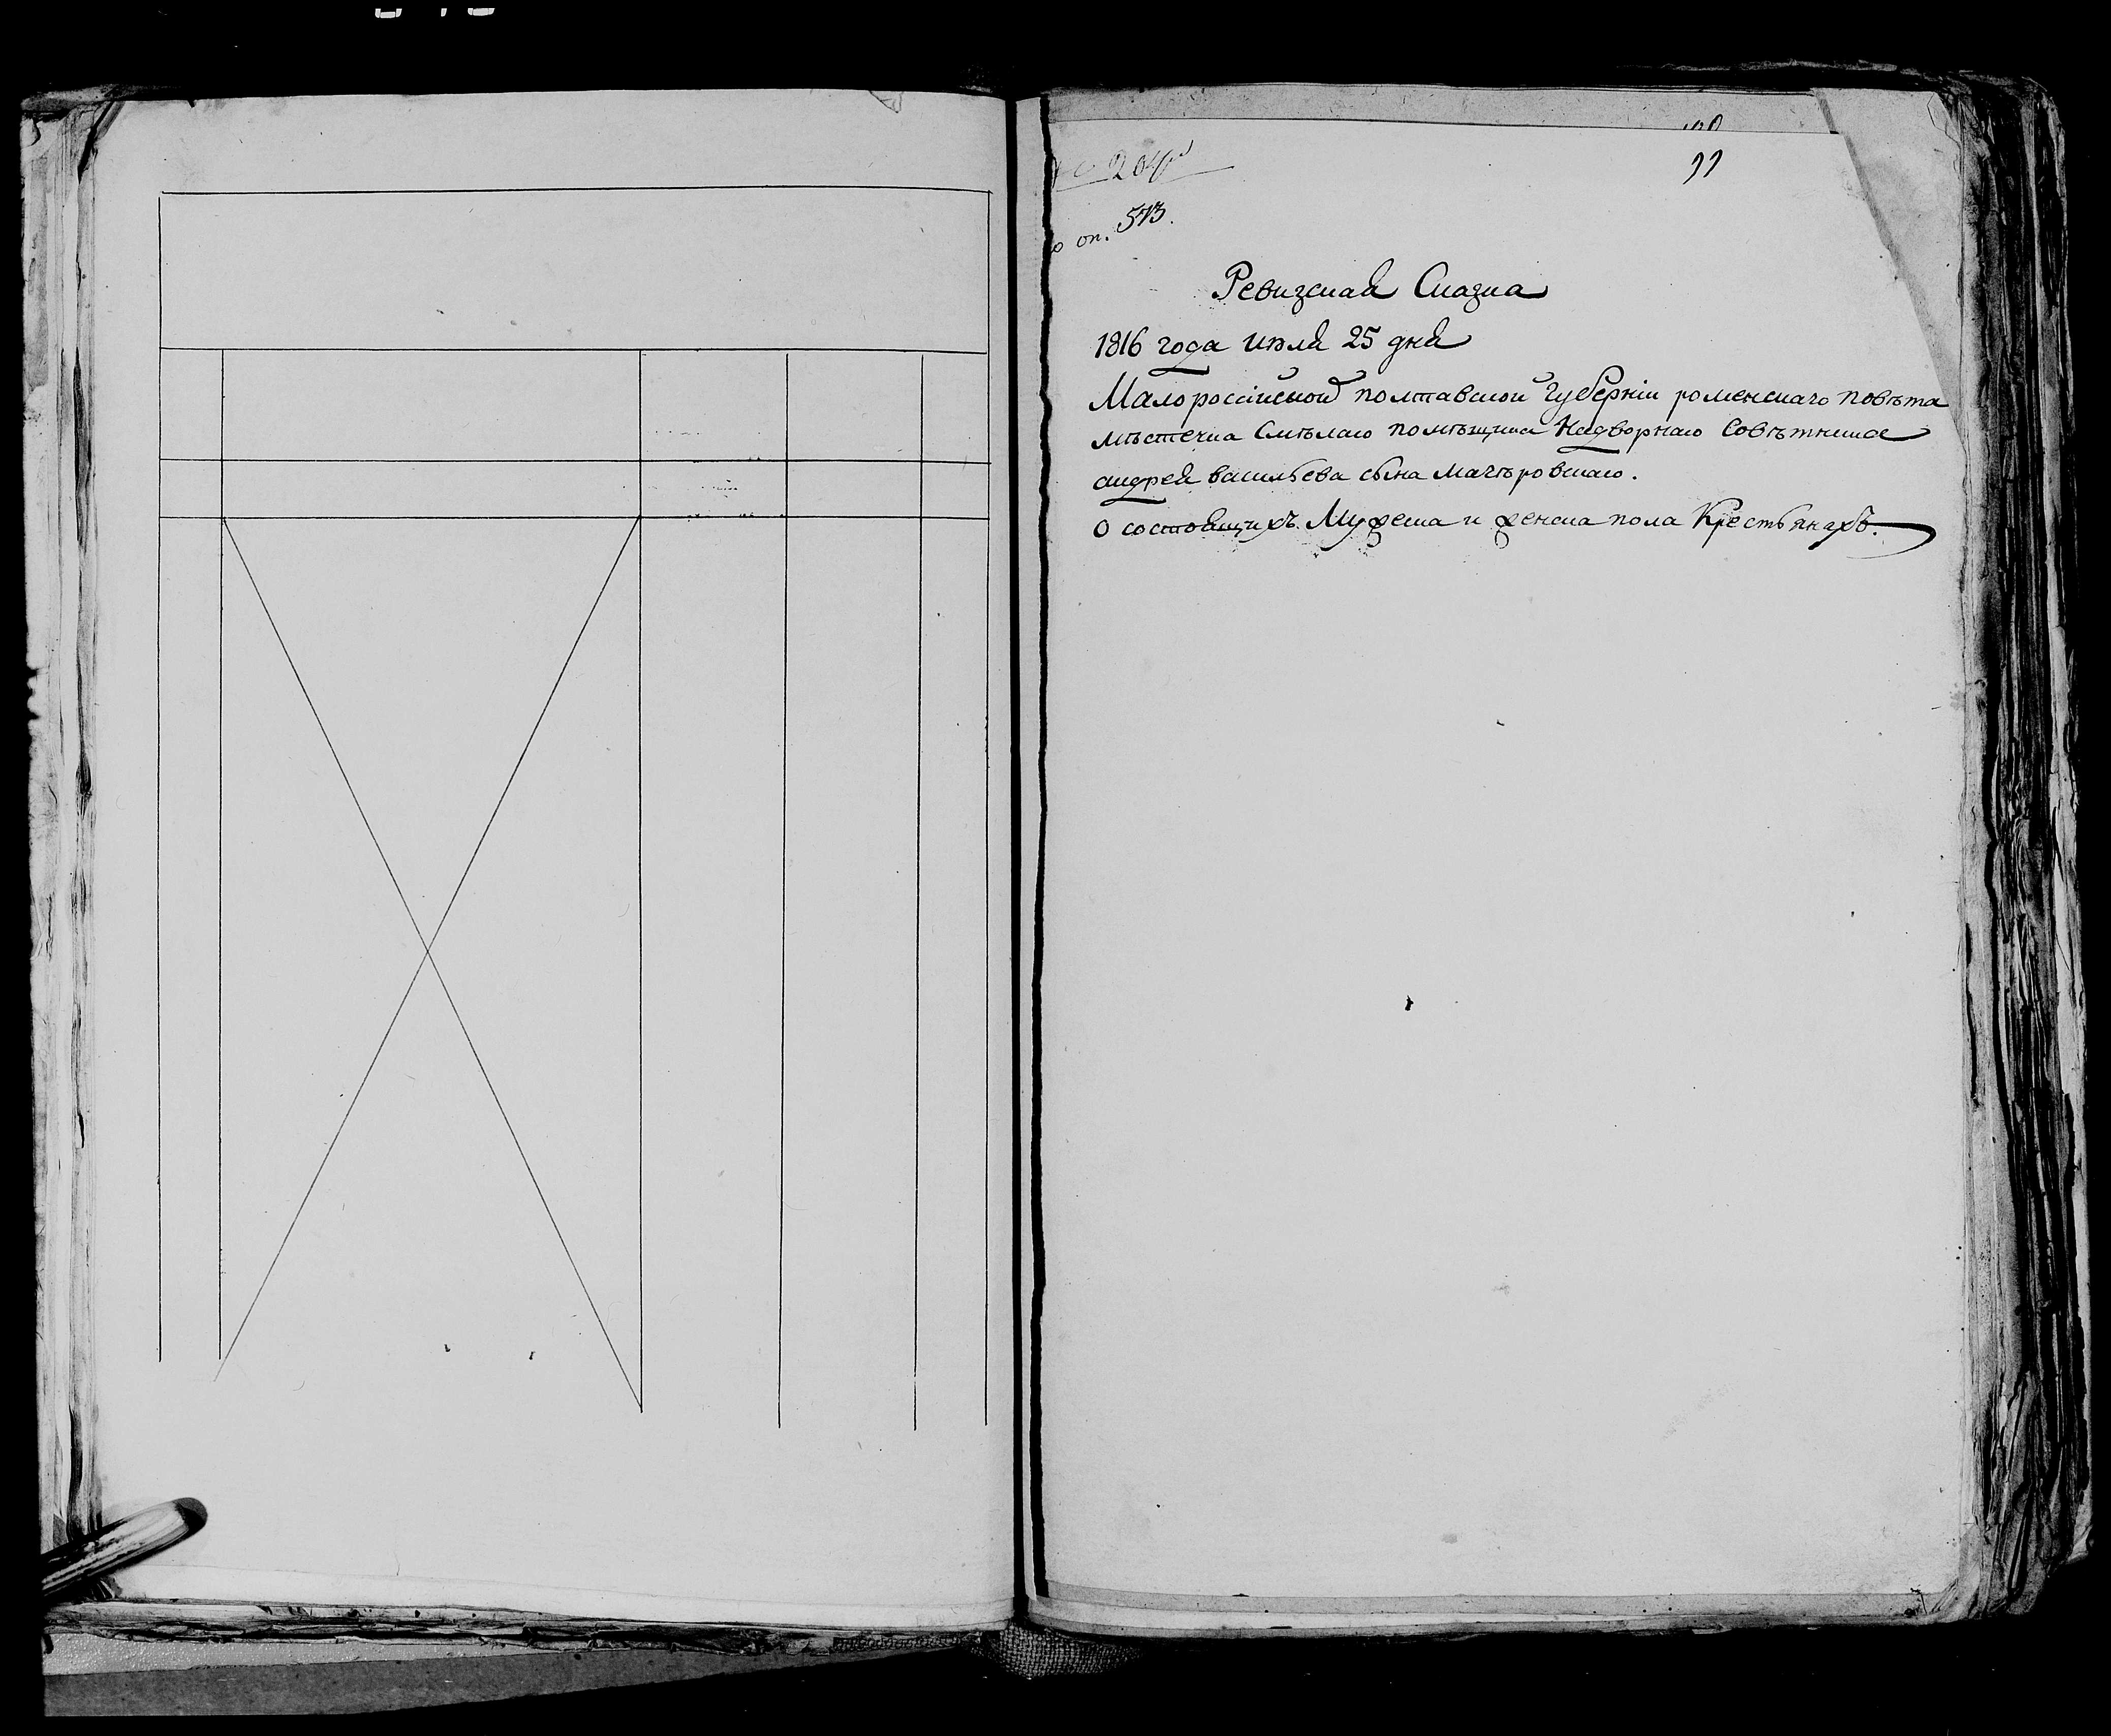 99
оп. 573.
Ревизская Сказка
1816 года июля 25 дня
Малороссійской полтавской губерніи роменскаго повѣта
мѣстечка Смѣлаго помѣщика Надворнаго Совѣтника
андрея васильева сына Мачѣровскаго.
о состоящихъ Мужеска и женска пола Крестьянахъ.